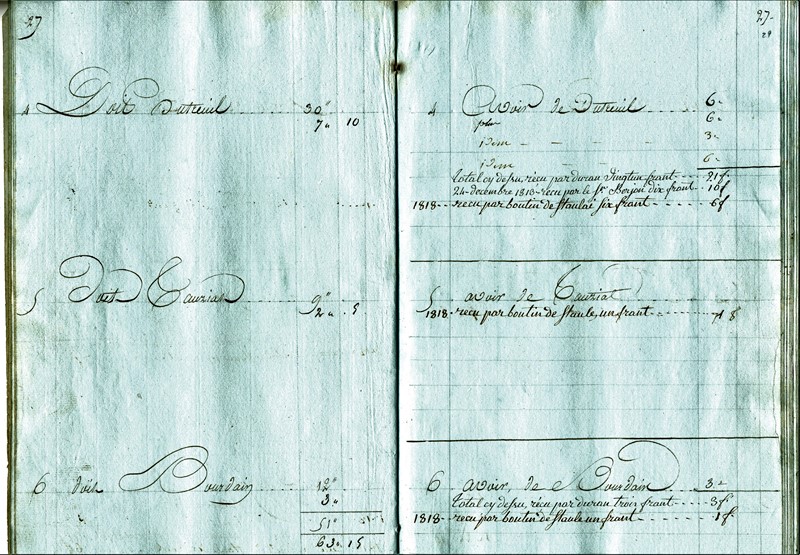 27
4 Doit Dutreuil 30"
7" 10
5 Doit Tauziat 9"
2" 5
6 doit Bourdain 12"
3"
51" 15
63" 15
27
28
4 Avoir de Dutreuil 6"
plus 6"
idem 3"
idem 6"
total cy desu, recu par duran vingtun frant 21f
24 decembre 1818 recu par le Sr Borjon dix frant 10f
1818 recu par boutin de staulai six frant 6f
5 avoir de Tauziat
1818 recu par boutin de staule, un frant 1f
6 avoir de Bourdain 3"
total cy desu, récu par duran trois frant 3f
1818 recu par boutin de staule un frant 1f